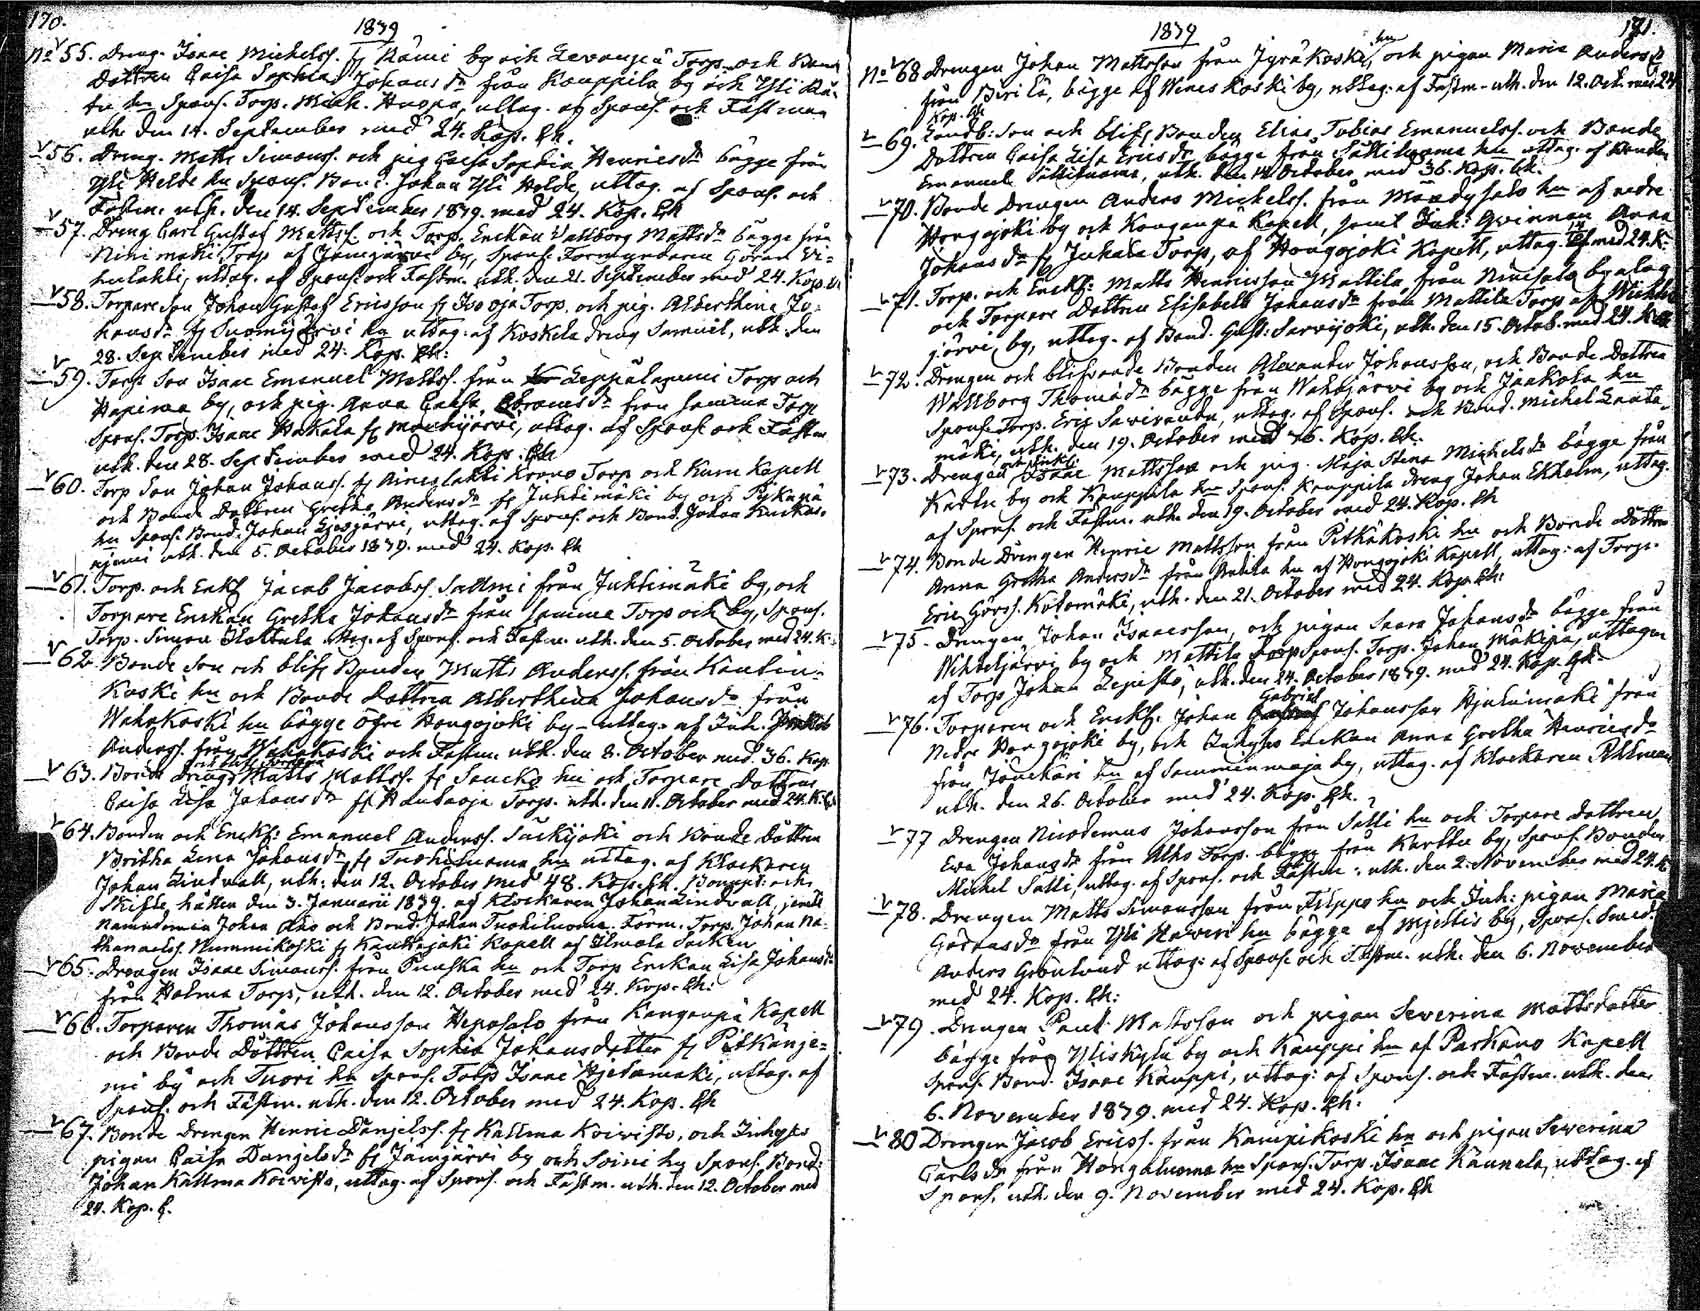 170.
1839
No 55. Dreng. Isaac Michelss. fr Rämi by och Levanpä Torp och Bond
Dottren Caisa Sophia Johansdr från Kauppila by och Yli
hn Spons. Torp. Mich. uttag. af Spons. och Fästman
utk. den 14. September med 24. Kop. Sk.
56. Dreng. Matts Simonss. och pig Caisa Sophia Henricsdr bägge från
Yli Helde hn Spons. Bond. Johan Yli Helde, uttag. af Spons. och
Fästm. utk. den 14. September 1839. med 24. Kop. Sk
57. Dreng Carl Gustaf Mattss. och Torp. Enckan Wallborg Mattsdr bägge från
Niinimäki Torp af Jämijärvi by, Spons. Förmyndaren Göran
uttag. af Spons. och Fästm. utk. den 21. September med 24. Kop. Sk
58. Torpare Son Johan Gustaf Ericsson fr Torp. och pig. Alberthina Jo-
hansdr fr Suomijärvi hn uttag. af Koskela dreng Samuel, utk. den
28. September med 24. Kop. Sk:
59. Torp. Son Isaac Emanuel Mattss. från Leppälaniemi Torp och
by, och pig. Anna Caisa Abramsdr från samma Torp
Spons. Torp. Isaac Hakala fr uttag. af Spons. och Fästm
utk. den 28. September med 24. Kop. Sk
60. Torp Son Johan Johanss. fr Krono Torp och Kapell
och Bonde Dottren Gretha Andersdr fr Juhtimäki by och
hn Spons. Bond. Johan uttag. af Spons. och Bond. Johan
utk. den 5. October 1839. med 24. Kop. Sk
61. Torp. och Enkl Jacob Jacobss. Sallmi från Juhtimäki by, och
Torpare Enckan Gretha Johansdr från samma Torp och by, Spons.
Torp. Simon uttag. af Spons. och Fästm. utk. den 5. October med 24. K.
62. Bonde Son och blifv Bonden Matts Anderss. från
Koski hn och Bonde Dottren Alberthina Johansdr från
Wahakoski hn bägge Öfre Hongojoki by - uttag. af Inh.
Anderss. från Wahakoski och Fästm. utk. den 8. October med 36. Kop
63. Bonde Dreng Matts Mattss. fr hn och Torpare Dottren
Caisa Lisa Johansdr fr Torp. utk. den 11. October med 24. K. Sk
64. Bonden och Enckl: Emanuel Anderss. Säckijoki och Bonde Dottren
Britha Lena Johansdr fr hn uttag. af Klockaren
Johan Lindvall, utk. den 12. October med 48. Kop. Sk. Boupt: och
Skifte, hållen den 3. Januarii 1839. af Klockaren Johan Lindvall, jemte
Nämndeman Johan Aho och Bond. Johan Tuohiluoma. Förm. Torp. Johan Na-
thanaelss. Nummikoski fr Kauhajoki Kapell af Ilmola Socken
65. Drengen Isaac Simonss. från hn och Torp Enckan Lisa Johansdr
från Halma Torp, utk. den 12. October med 24. Kop. Sk:
66. Torparen Thomas Johansson Heposalo från Kangaspä Kapell
och Bonde Dottren Caisa Sophia Johansdotter fr Pitkänje-
mi by och Tuori hn Spons. Torp Isaac Hietamäki, uttag. af
Spons. och Fästm. utk. den 12. October med 24. Kop. Sk
67. Bonde Drengen Henric Danjelss. fr Kallma Koivisto, och Inhyses
pigan Caisa Danjelsdr fr Jämijärvi by och Soini hn Spons. Bond:
Johan Kallma Koivisto, uttag. af Spons. och Fästm. utk. den 12. October med
24. Kop. S.
171.
1839
No 68 Drengen Johan Mattsson från Jyräkoski hn, och pigan Maria Andersdr
från Perilä, bägge af Wineskoski by, uttag. af Fästm. utk. den 12. Oct. med 24
Kop. Sk
69. Landb: Son och blifv Bonden Elias Tobias Emanuelss. och Bonde
Dottren Caisa Lisa Ericsdr bägge från hn uttag. af Bonden
Emanuel utk. den 14 October med 36. Kop. Sk.
70. Bonde Drengen Anders Michelss. från Mändysalo hn af nedre
Hongojoki by och Kangaspä Kapell, samt Inh: Qvinnan Anna
Johansdr fr Juhala Torp, af Hongojoki Kapell, uttag. 14 October med 24. K.
71. Torp. och Enckl: Matts Henricsson Mattila, från Niinisalo by
och Torpare Dottren Elisabeth Johansdr från Mattila Torp af Wihtel
järvi by, uttag. af Bond. Gust: Sarvijoki, utk. den 15. Octob. med 24. K. Sk
72. Drengen och blifvande Bonden Alexander Johansson, och Bonde Dottren
Wallborg Thomædr bägge från Wahojärvi by och Jaakola hn
Spons. Torp. Eric Saviranda, uttag. af Spons. och Bond. Michel Lauta-
mäki, utk. den 19. October med 76. Kop. Sk:
73. Drengen och Enkl: Isaac Mattsson och pig. Maja Stina Michelsdr bägge från
Karttu by och Kauppila hn Spons. Kauppila Dreng Johan Ekholm, uttag.
af Spons. och Fästm. utk. den 19. October med 24. Kop. Sk
74. Bonde Drengen Henric Mattsson från Pitkäkoski hn och Bonde Dottren
Anna Gretha Andersdr från hn af Hongojoki Kapell, uttag: af Torp.
Eric Görss. Kotomäki, utk. den 21. October med 24. Kop. Sk:
75. Drengen Johan Isaacsson, och pigan Saara Johansdr bägge från
Wihteljärvi by och Mattila Torp Spons. Torp. Johan Mäkipä, uttagen
af Torp Johan Lepistö, utk. den 24. October 1839. med 24. Kop. Sk.
76. Torparen och Enckl. Johan Gabriel Johansson Hjulumäki från
Nedre Hongojoki by, och Inhyses Enckan Anna Gretha Henricsdr
från hn af Sammenmaja by, uttag. af Klockaren Pihlman
utk. den 26. October med 24. Kop. Sk.
77 Drengen Nicodemus Johansson från Sätti hn och Torpare dottren
Eva Johansdr från Alho Torp. bägge från Karttu by, Spons. Bonden
Michel Sätti, uttag. af Spons. och Fästm: utk. den 2. November med 24. K
78. Drengen Matts Simonsson från Filppo hn och Inh: pigan Maria
Göransdr från Yli hn bägge af by, Spons. Smed.
Anders Grönlund uttag: af Spons. och Fästm. utk. den 6. November
med 24. Kop. Sk:
79. Drengen Paul Mattsson och pigan Severina Mattsdotter
bägge från Yliskylä by och Kauppi hn af Parkano Kapell
Spons. Bond. Isaac Kauppi, uttag: af Spons. och Fästm. utk. den
6. November 1839. med 24. Kop. Sk:
80 Drengen Jacob Ericss. från Kampikoski hn och pigan Severina
Carlsdr från Hongaluoma hn Spons. Torp. Isaac Kannala, uttag. af
Spons. utk. den 9. November med 24. Kop. Sk